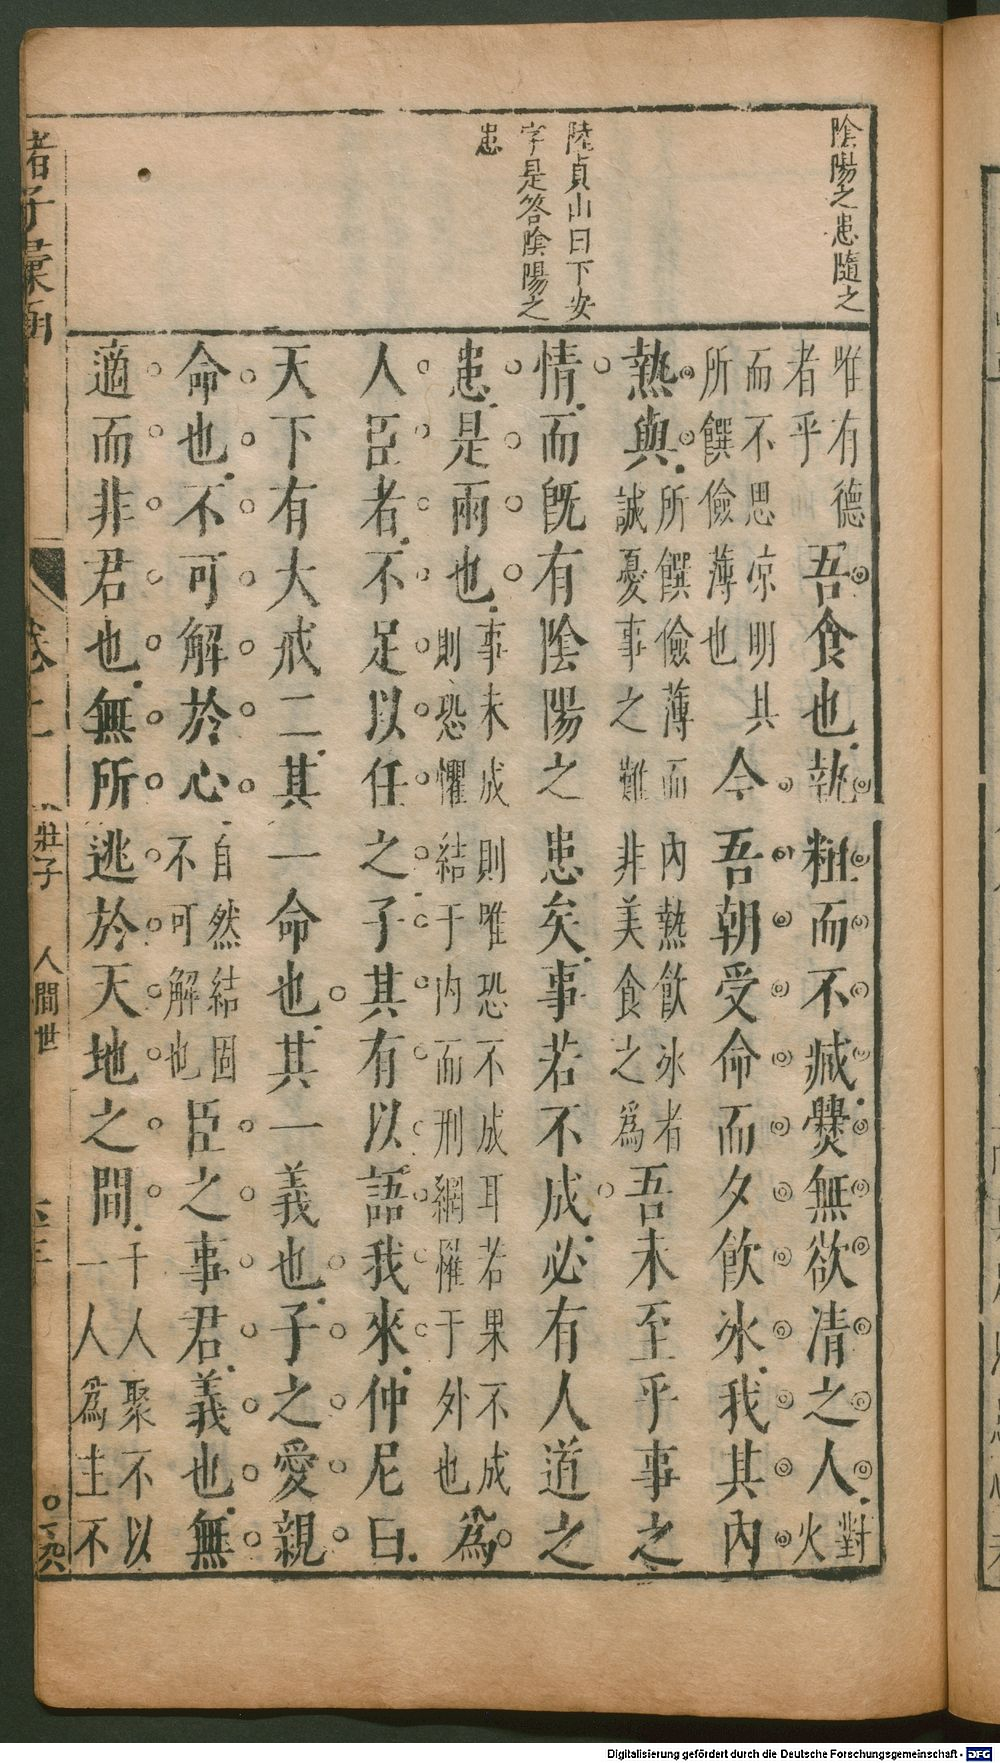 陰陽之患隨之
陸貞山曰下安
字是答陰陽之
患
唯有德
者乎
吾食也執粗而不臧爨無欲清之人
對
火
而不思凉明其
所饌儉薄也
今吾朝受命而夕飲冰我其內
熱與
所饌儉薄而內熱飲冰者
誠憂事之難非美食之為
吾未至乎事之
情而旣有陰陽之患矣事若不成必有人道之
患是兩也
事未成則唯恐不成耳若果不成
則恐懼結于內而刑網罹于外也
為
人臣者不足以任之子其有以語我來仲尼曰
天下有大戒二其一命也其一義也子之愛親
命也不可解於心
自然結固
不可解也
臣之事君義也無
適而非君也無所逃於天地之間
千人聚不以
一人為主不
諸子彙函
卷二
莊子 人間世
Digitalisierung gefördert durch die Deutsche Forschungsgemeinschaft - DFG